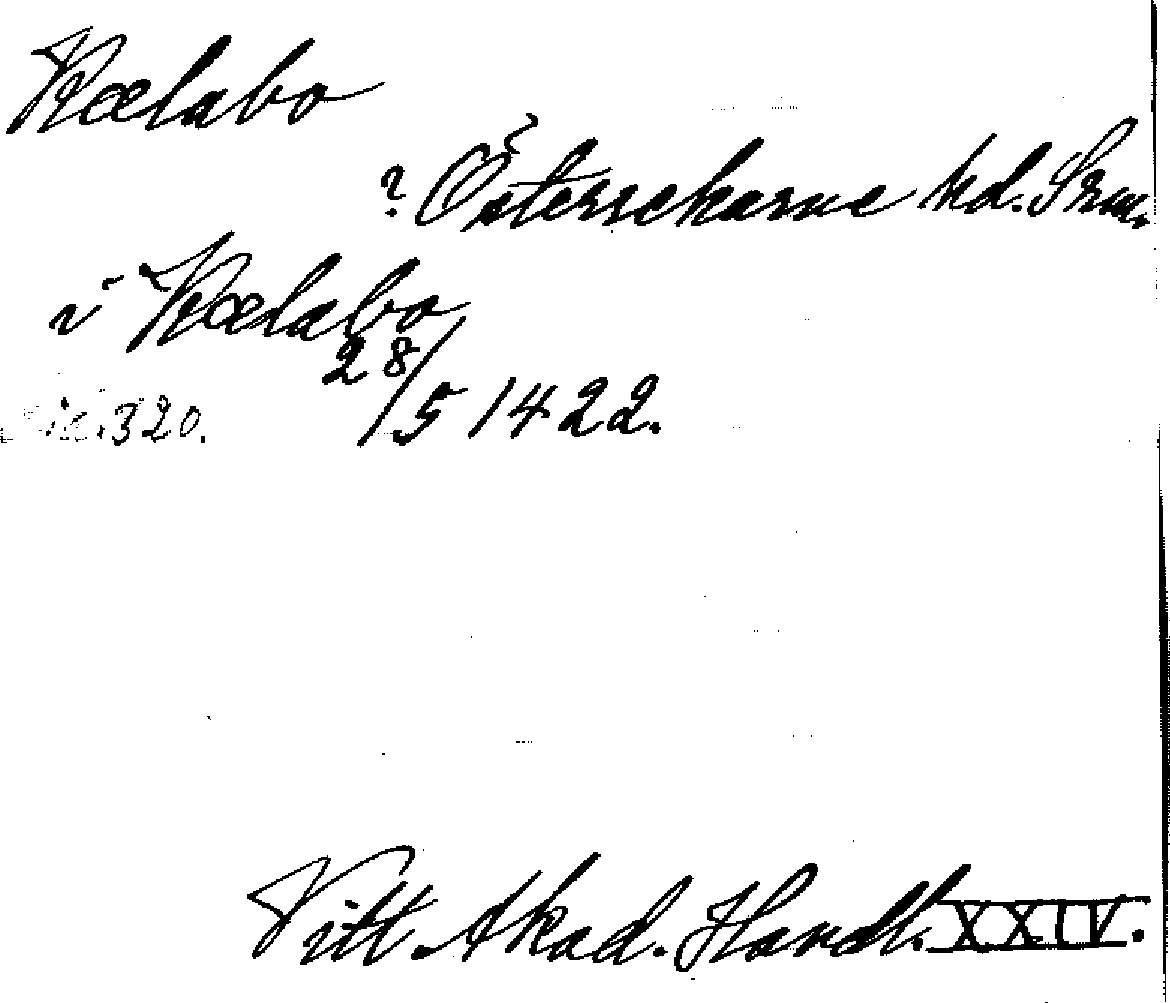 Kælabo
? Österrekarne hd. Srm.
i Kælabo
28/5 1422.
320.
Vitt. Akad. Handl. XXIV.